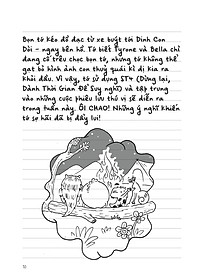 Bọn tớ kéo đồ đạc từ xe buýt tới Dinh Con
Dơi – ngay bên hồ. Tớ biết Tyrone và Bella chỉ
đang cố trêu chọc bọn tớ, nhưng tớ không thể
gạt bỏ hình ảnh con thuỷ quái kì dị kia ra
khỏi đầu. Vì vậy, tớ sử dụng ST4 (Dừng lại,
Dành Thời Gian Để Suy nghĩ) và tập trung
vào những cuộc phiêu lưu thú vị sẽ diễn ra
trong tuần này. ÔI CHAO! Những ý nghĩ khiến
tớ sợ hãi đã bị đẩy lui!